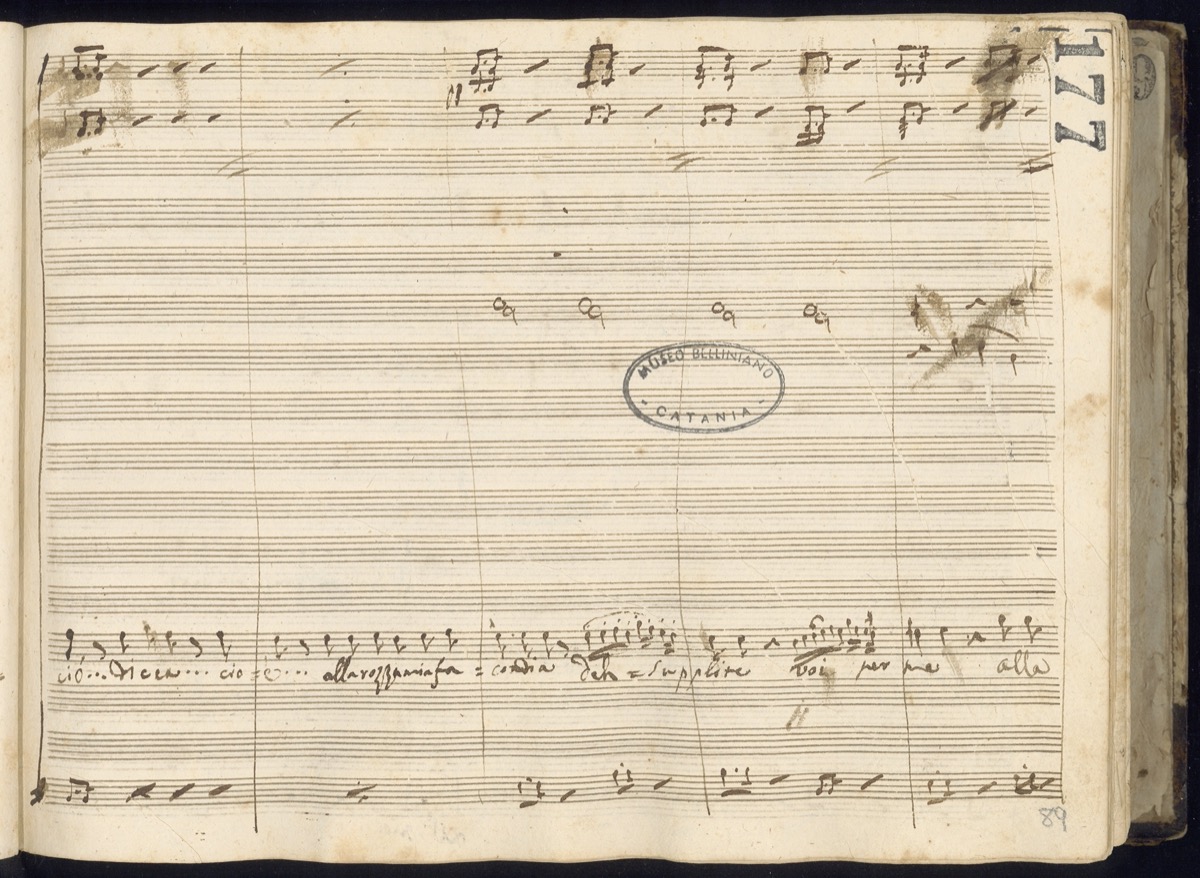 177
MUSEO BELLINIANO
CATANIA
ciò... Nicea... cio = è... alla rozza mia fa = condia deh = supplire voi per me alla
89